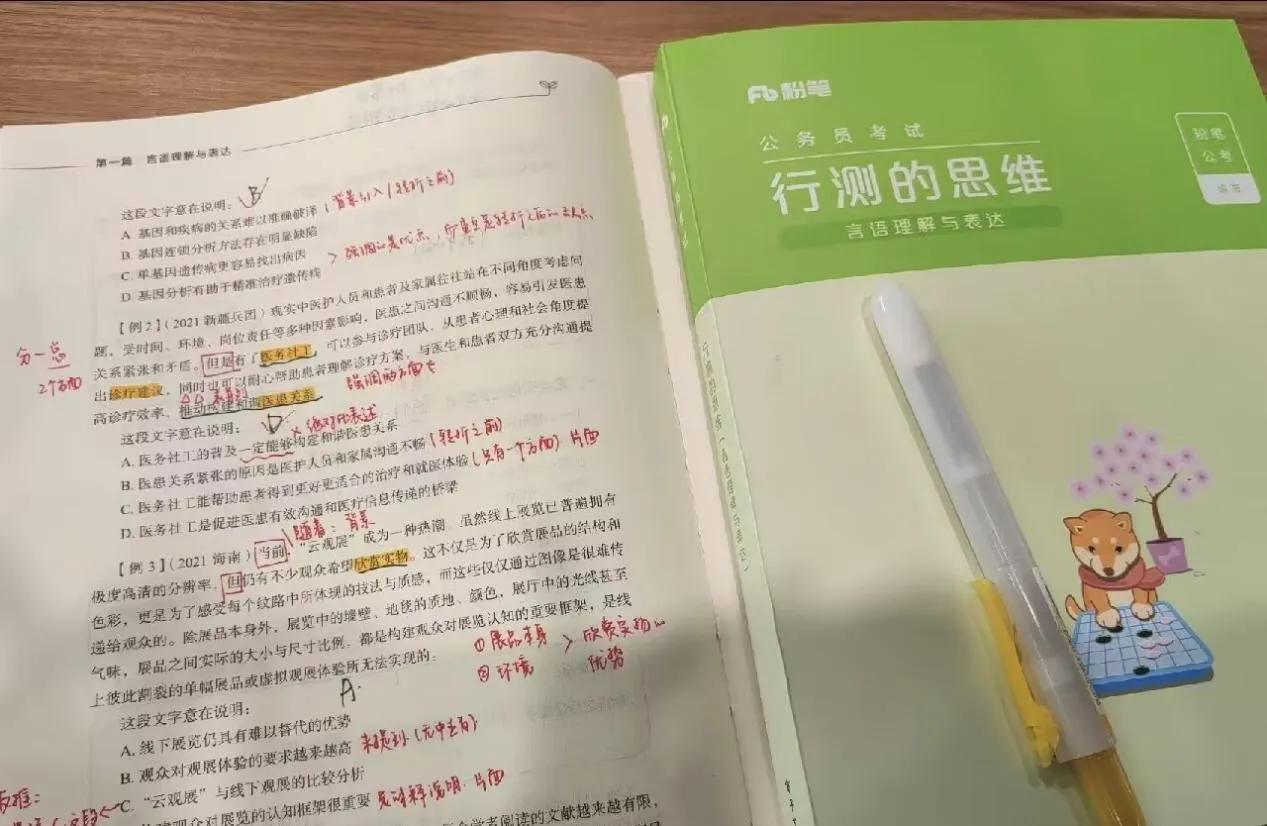 第一篇 言语理解与表达
这段文字意在说明：B
A. 基因和疾病的关系难以准确破译（背景引入（转折之前）
B. 基因连锁分析方法存在明显缺陷
C. 单基因遗传病更容易找出病因
D. 基因分析有助于精准治疗遗传病
【例2】（2021新疆兵团）现实中医护人员和患者及家属往往站在不同角度考虑问
题，受时间、环境、岗位责任等多种因素影响，医患之间沟通不顺畅，容易引发医患
关系紧张和矛盾。但是有了医务社工，可以参与诊疗团队，从患者心理和社会角度提
出诊疗建议，同时也可以耐心帮助患者理解诊疗方案，与医生和患者双方充分沟通提
高诊疗效率，推动构建和谐医患关系。
分一总
2个方面
强调两方面
这段文字意在说明：D
绝对化表述
A. 医务社工的普及一定能够构建和谐医患关系
B. 医患关系紧张的原因是医护人员和家属沟通不畅（转折之前）
C. 医务社工能帮助患者得到更好更适合的治疗和就医体验（只有一个方面）片面
D. 医务社工是促进医患有效沟通和医疗信息传递的桥梁
随着：背景
【例3】（2021海南）当前，“云观展”成为一种热潮。虽然线上展览已普遍拥有
极度高清的分辨率，但仍有不少观众希望欣赏实物。这不仅是为了欣赏展品的结构和
色彩，更是为了感受每个纹路中所体现的技法与质感，而这些仅仅通过图像是很难传
递给观众的。除展品本身外，展览中的墙壁、地毯的质地、颜色，展厅中的光线甚至
气味，展品之间实际的大小与尺寸比例，都是构建观众对展览认知的重要框架，是线
上彼此割裂的单幅展品或虚拟观展体验所无法实现的。
①展品本身
②环境
欣赏实物的
优势
这段文字意在说明：A.
A. 线下展览仍具有难以替代的优势
B. 观众对观展体验的要求越来越高 未提到（无中生有）
C. “云观展”与线下观展的比较分析
构建观众对展览的认知框架很重要 解释说明. 片面
学者阅读的文献越来越有限，
Fb粉笔
公务员考试
行测的思维
言语理解与表达
粉笔
公考
编著